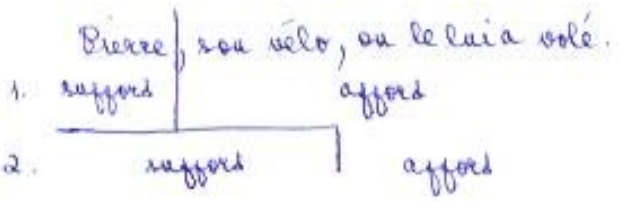 Pierre, son vélo, on le lui a volé.
1. support apport
2. support apport